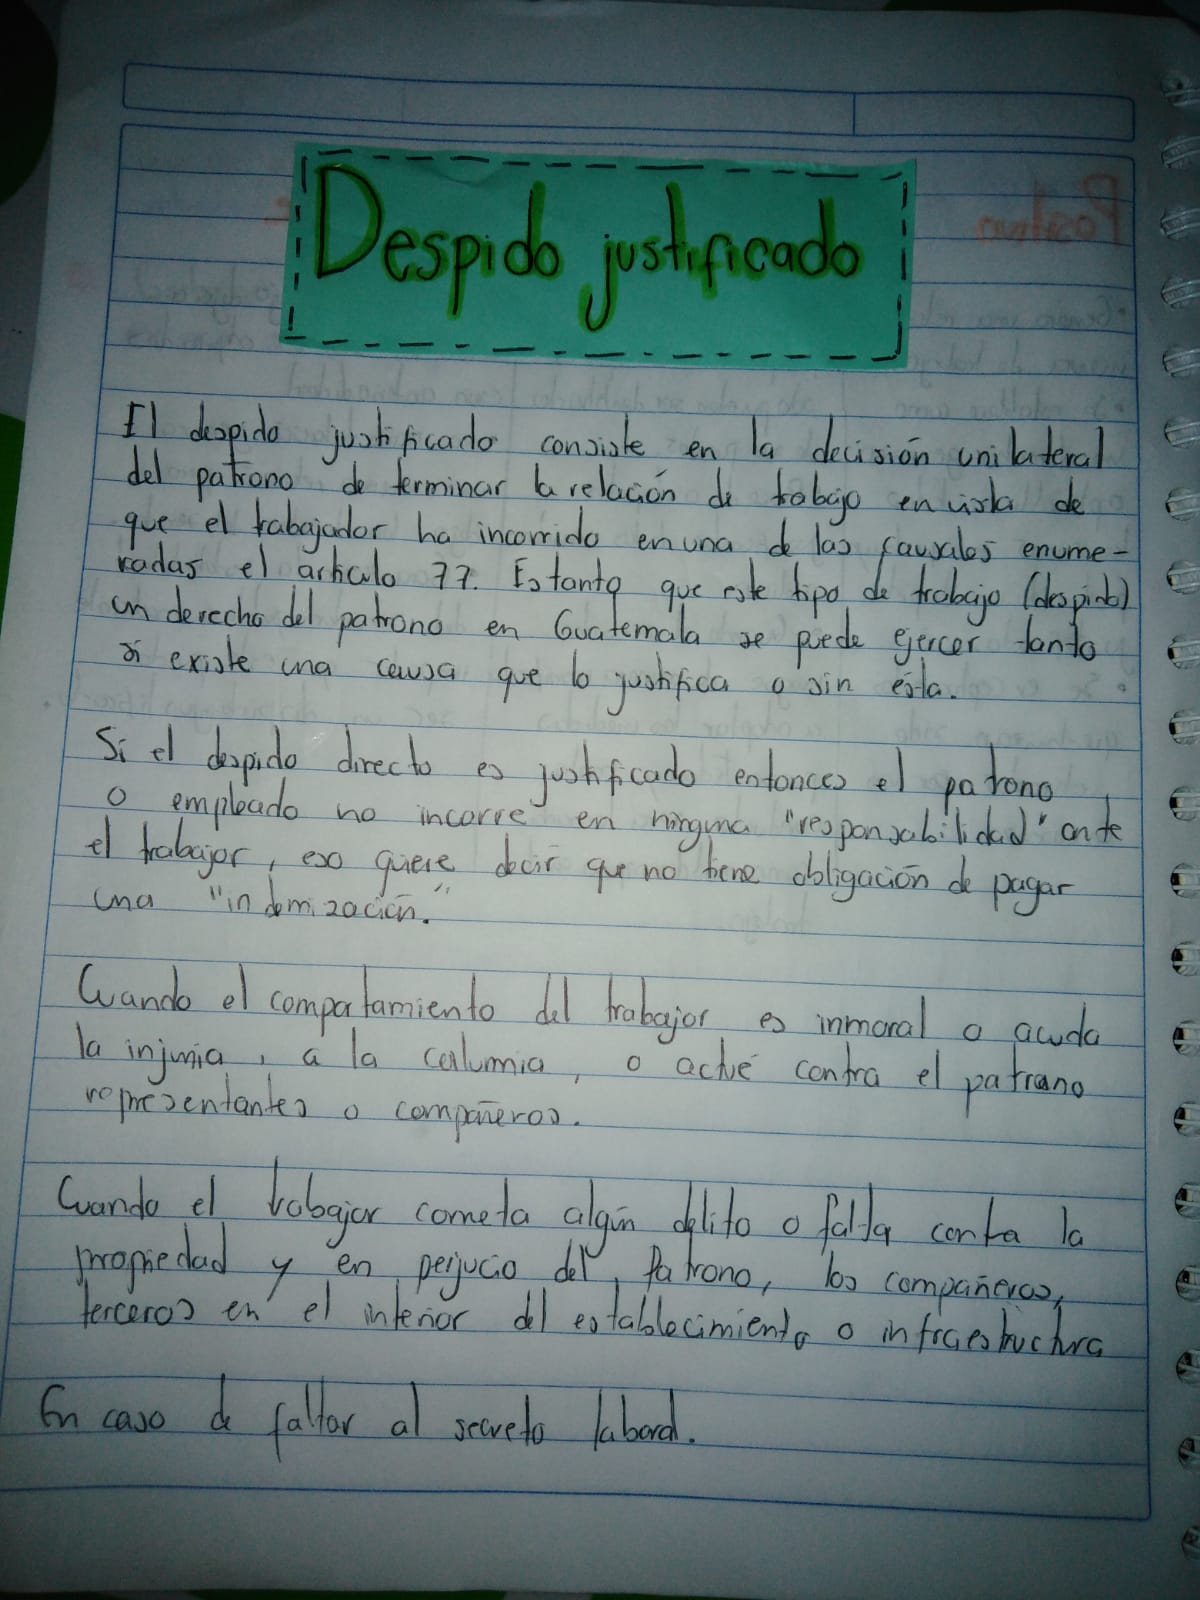 Despido justificado
El despido justificado consiste en la decisión unilateral
del patrono de terminar la relación de trabajo en vista de
que el trabajador ha incorrido en una de las causales enume-
radas el articulo 77. Es tanto que este tipo de trabajo (despido)
un derecho del patrono en Guatemala se puede ejercer tanto
si existe una causa que lo justifica o sin ésta.
Si el despido directo es justificado entonces el patrono,
o empleado no incorre en ninguna "responsabilidad" ante
el trabajor, eso quiere decir que no tiene obligación de pagar
una "indemización."
Cuando el compartamiento del trabajor es inmoral o acuda
la injuria, a la calumia, o actué contra el patrano
representantes o compañeros.
Cuando el trabajor cometa algún delito o falta contra la
propiedad y en perjucio del Patrono, los compañeros,
terceros en el interior del establecimiento o infraestructura
En caso de faltar al secreto laboral.
Positivo